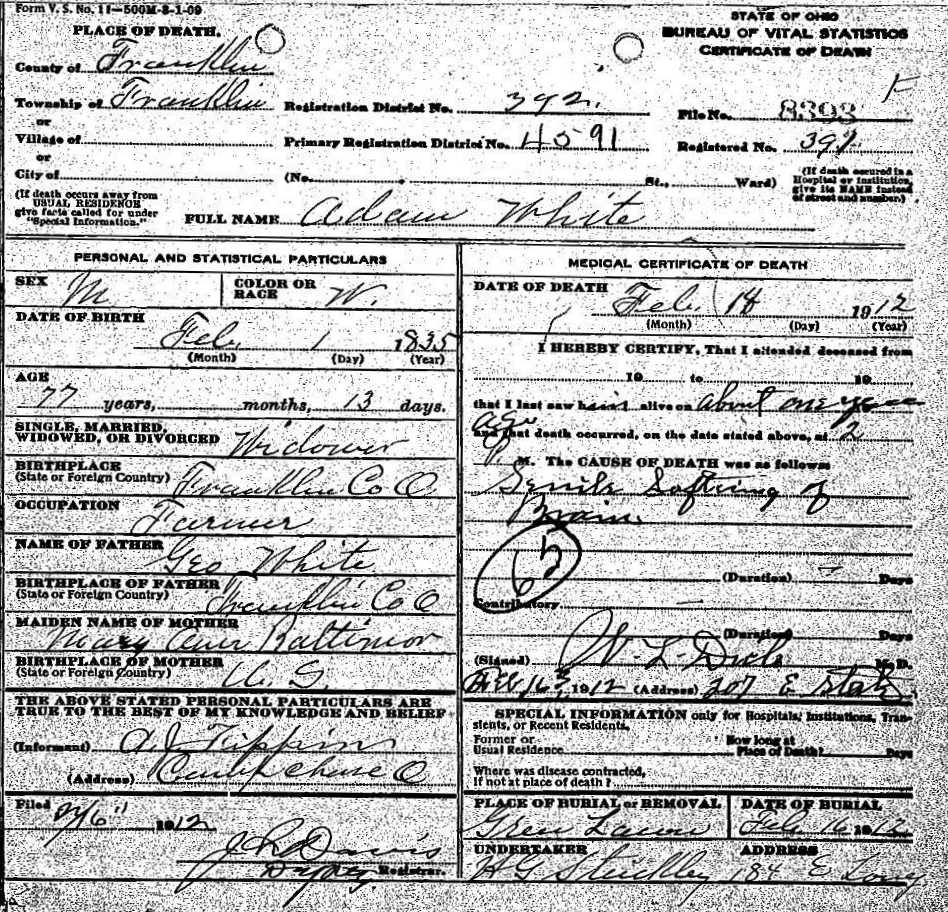 Form V. S. No. 11—500M-8-1-09
PLACE OF DEATH.
County of Franklin
Township of Franklin
or
Village of
or
City of
(If death occurs away from
USUAL RESIDENCE
give facts called for under
"Special Information.")
STATE OF OHIO
BUREAU OF VITAL STATISTICS
CERTIFICATE OF DEATH
Registration District No. 392. File No. 8393
Primary Registration District No. 4591 Registered No. 391
(No. St., Ward)
(If death occured in a
Hospital or institution,
give its NAME instead
of street and number.)
FULL NAME Adam White
PERSONAL AND STATISTICAL PARTICULARS
SEX M COLOR OR RACE W.
DATE OF BIRTH
Feb 1 1835
(Month) (Day) (Year)
AGE
77 years, months, 13 days.
SINGLE, MARRIED,
WIDOWED, OR DIVORCED Widower
BIRTHPLACE
(State or Foreign Country) Franklin Co O
OCCUPATION Farmer
NAME OF FATHER Geo White
BIRTHPLACE OF FATHER
(State or Foreign Country) Franklin Co O
MAIDEN NAME OF MOTHER
Mary Ann Baltimor
BIRTHPLACE OF MOTHER
(State or Foreign Country) U. S.
THE ABOVE STATED PERSONAL PARTICULARS ARE
TRUE TO THE BEST OF MY KNOWLEDGE AND BELIEF
(Informant) A J Tippin
(Address) O
Filed
2/16" 1912
J Davis
Deputy Registrar.
MEDICAL CERTIFICATE OF DEATH
DATE OF DEATH
Feb 14 1912
(Month) (Day) (Year)
I HEREBY CERTIFY, That I attended deceased from
19 to 19
that I last saw him alive on about one year
ago
and that death occurred, on the date stated above, at 2
P. M. The CAUSE OF DEATH was as follows:
Senile Softning of
Brain
65
(Duration) — Days
Contributory —
(Duration) Days
(Signed) W. L. Dick M. D.
Feb 16 1912 (Address) 207 E State
SPECIAL INFORMATION only for Hospitals, Institutions, Transients, or Recent Residents.
Former or
Usual Residence
How long at
Place of Death? Days
Where was disease contracted,
If not at place of death?
PLACE OF BURIAL or REMOVAL
Green Lawn
DATE OF BURIAL
Feb 16 1912
UNDERTAKER
H G Stuckley
ADDRESS
184 E Long